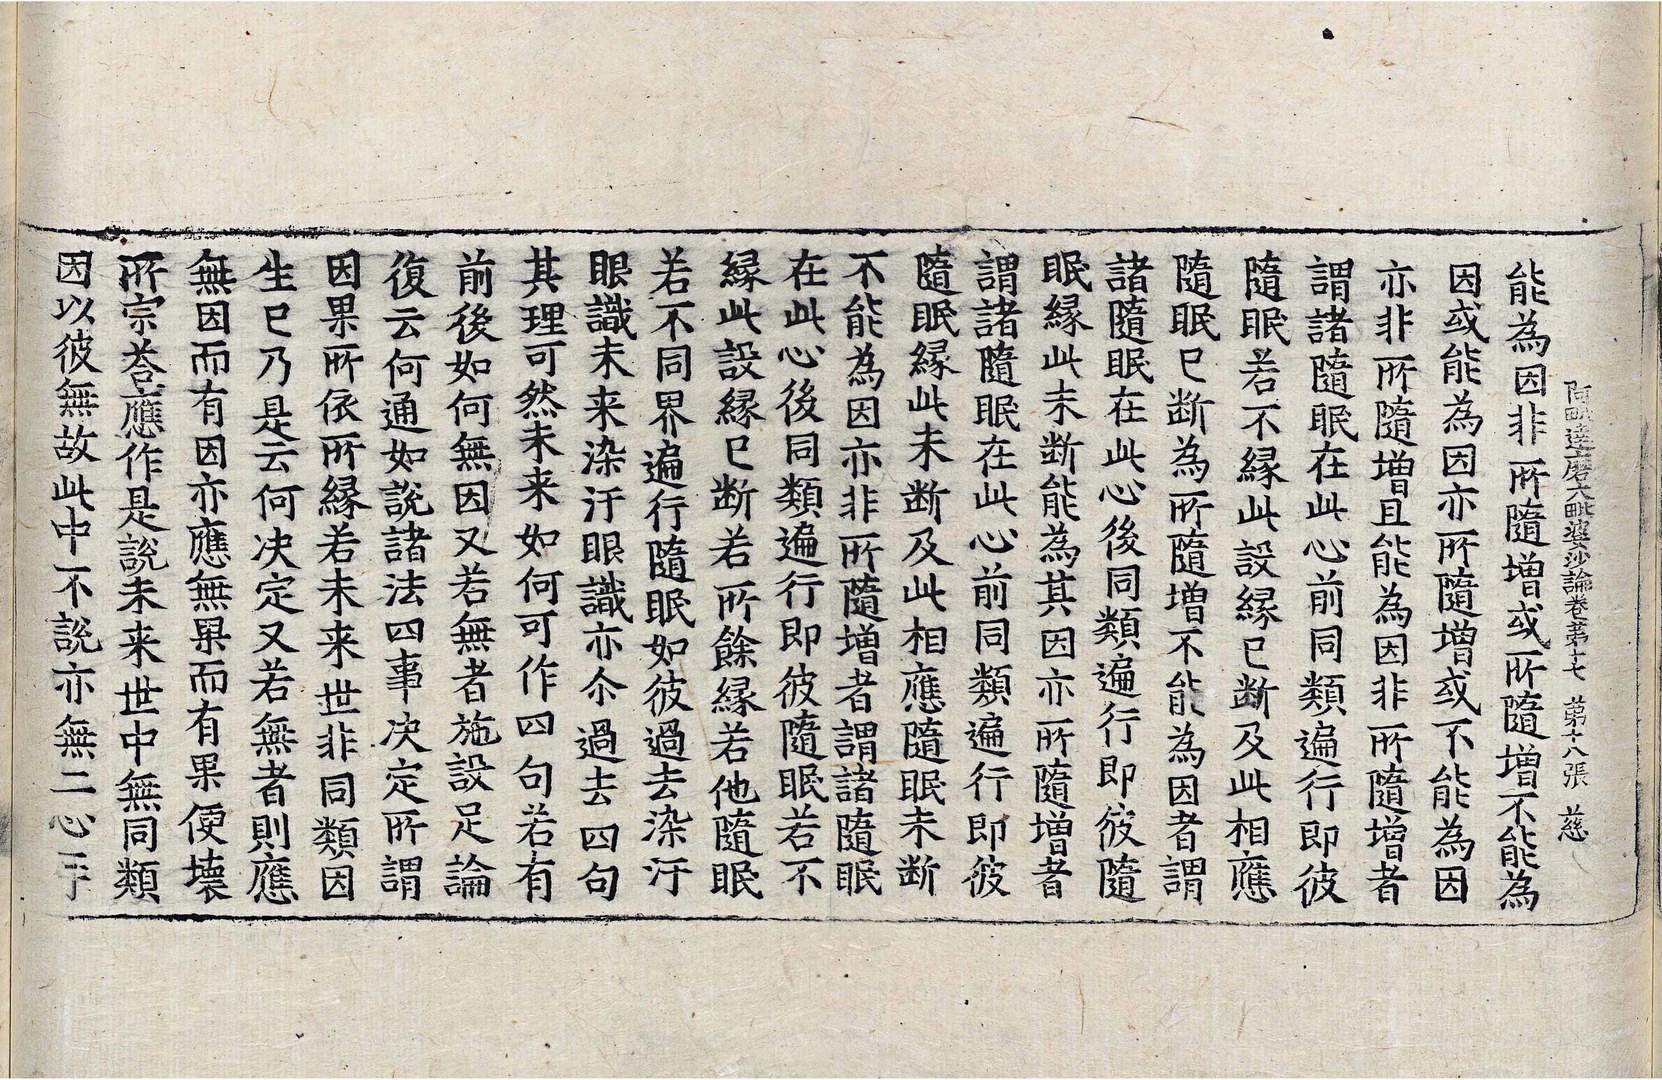 阿毗達磨大毗婆沙論卷第十七 第十八張 慈
能為因非所隨增或所隨增不能為
因或能為因亦所隨增或不能為因
亦非所隨增且能為因非所隨增者
謂諸隨眠在此心前同類遍行即彼
隨眠若不緣此設緣已斷及此相應
隨眠已斷為所隨增不能為因者謂
諸隨眠在此心後同類遍行即彼隨
眠緣此未断能為其因亦所隨增者
謂諸隨眠在此心前同類遍行即彼
隨眠緣此未断及此相應隨眠未断
不能為因亦非所隨增者謂諸隨眠
在此心後同類遍行即彼隨眠若不
緣此設緣已斷若所餘緣若他隨眠
若不同界遍行隨眠如彼過去染汙
眼識未来染汙眼識亦尒過去四句
其理可然未来如何可作四句若有
前後如何無因又若無者施設足論
復云何通如說諸法四事决定所謂
因果所依所緣若未来世非同類因
生已乃是云何决定又若無者則應
無因而有因亦應無果而有果便壞
所宗荅應作是說未来世中無同類
因以彼無故此中不說亦無二心